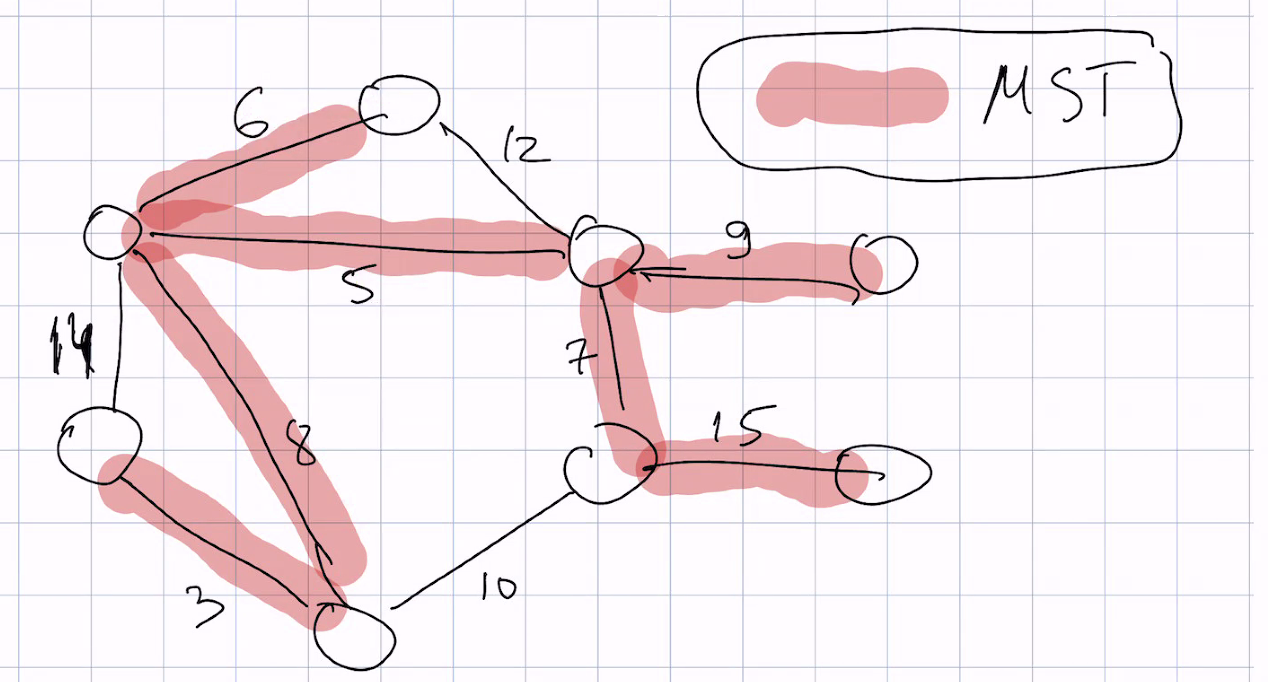 MST
6
12
9
5
14
7
8
15
3
10